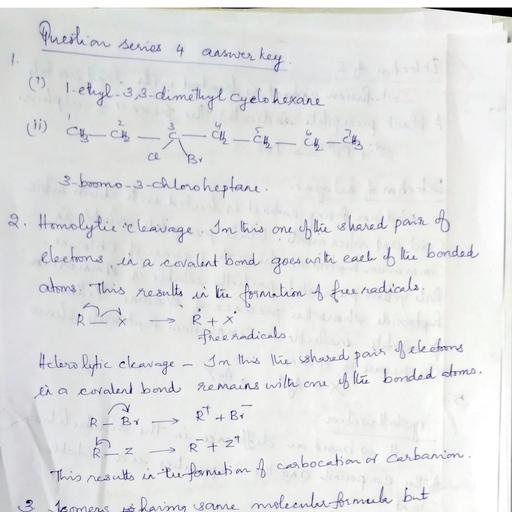 Question series 4 answer key.
1.
(i) 1-ethyl-3,3-dimethyl cyclohexane
(ii) 1 2 3 4 5 6 7
CH3 — CH2 — C — CH2 — CH2 — CH2 — CH3
Cl Br
3-bromo-3-chloroheptane.
2. Homolytic cleavage. In this one of the shared pair of
electrons in a covalent bond goes with each of the bonded
atoms. This results in the formation of free radicals.
R — X → Ṙ + Ẋ
free radicals
Heterolytic cleavage – In this the shared pair of electrons
in a covalent bond remains with one of the bonded atoms.
R – Br → R⁺ + Br⁻
R – Z → R⁻ + Z⁺
This results in the formation of carbocation or carbanion.
3. Isomers having same molecular formula but